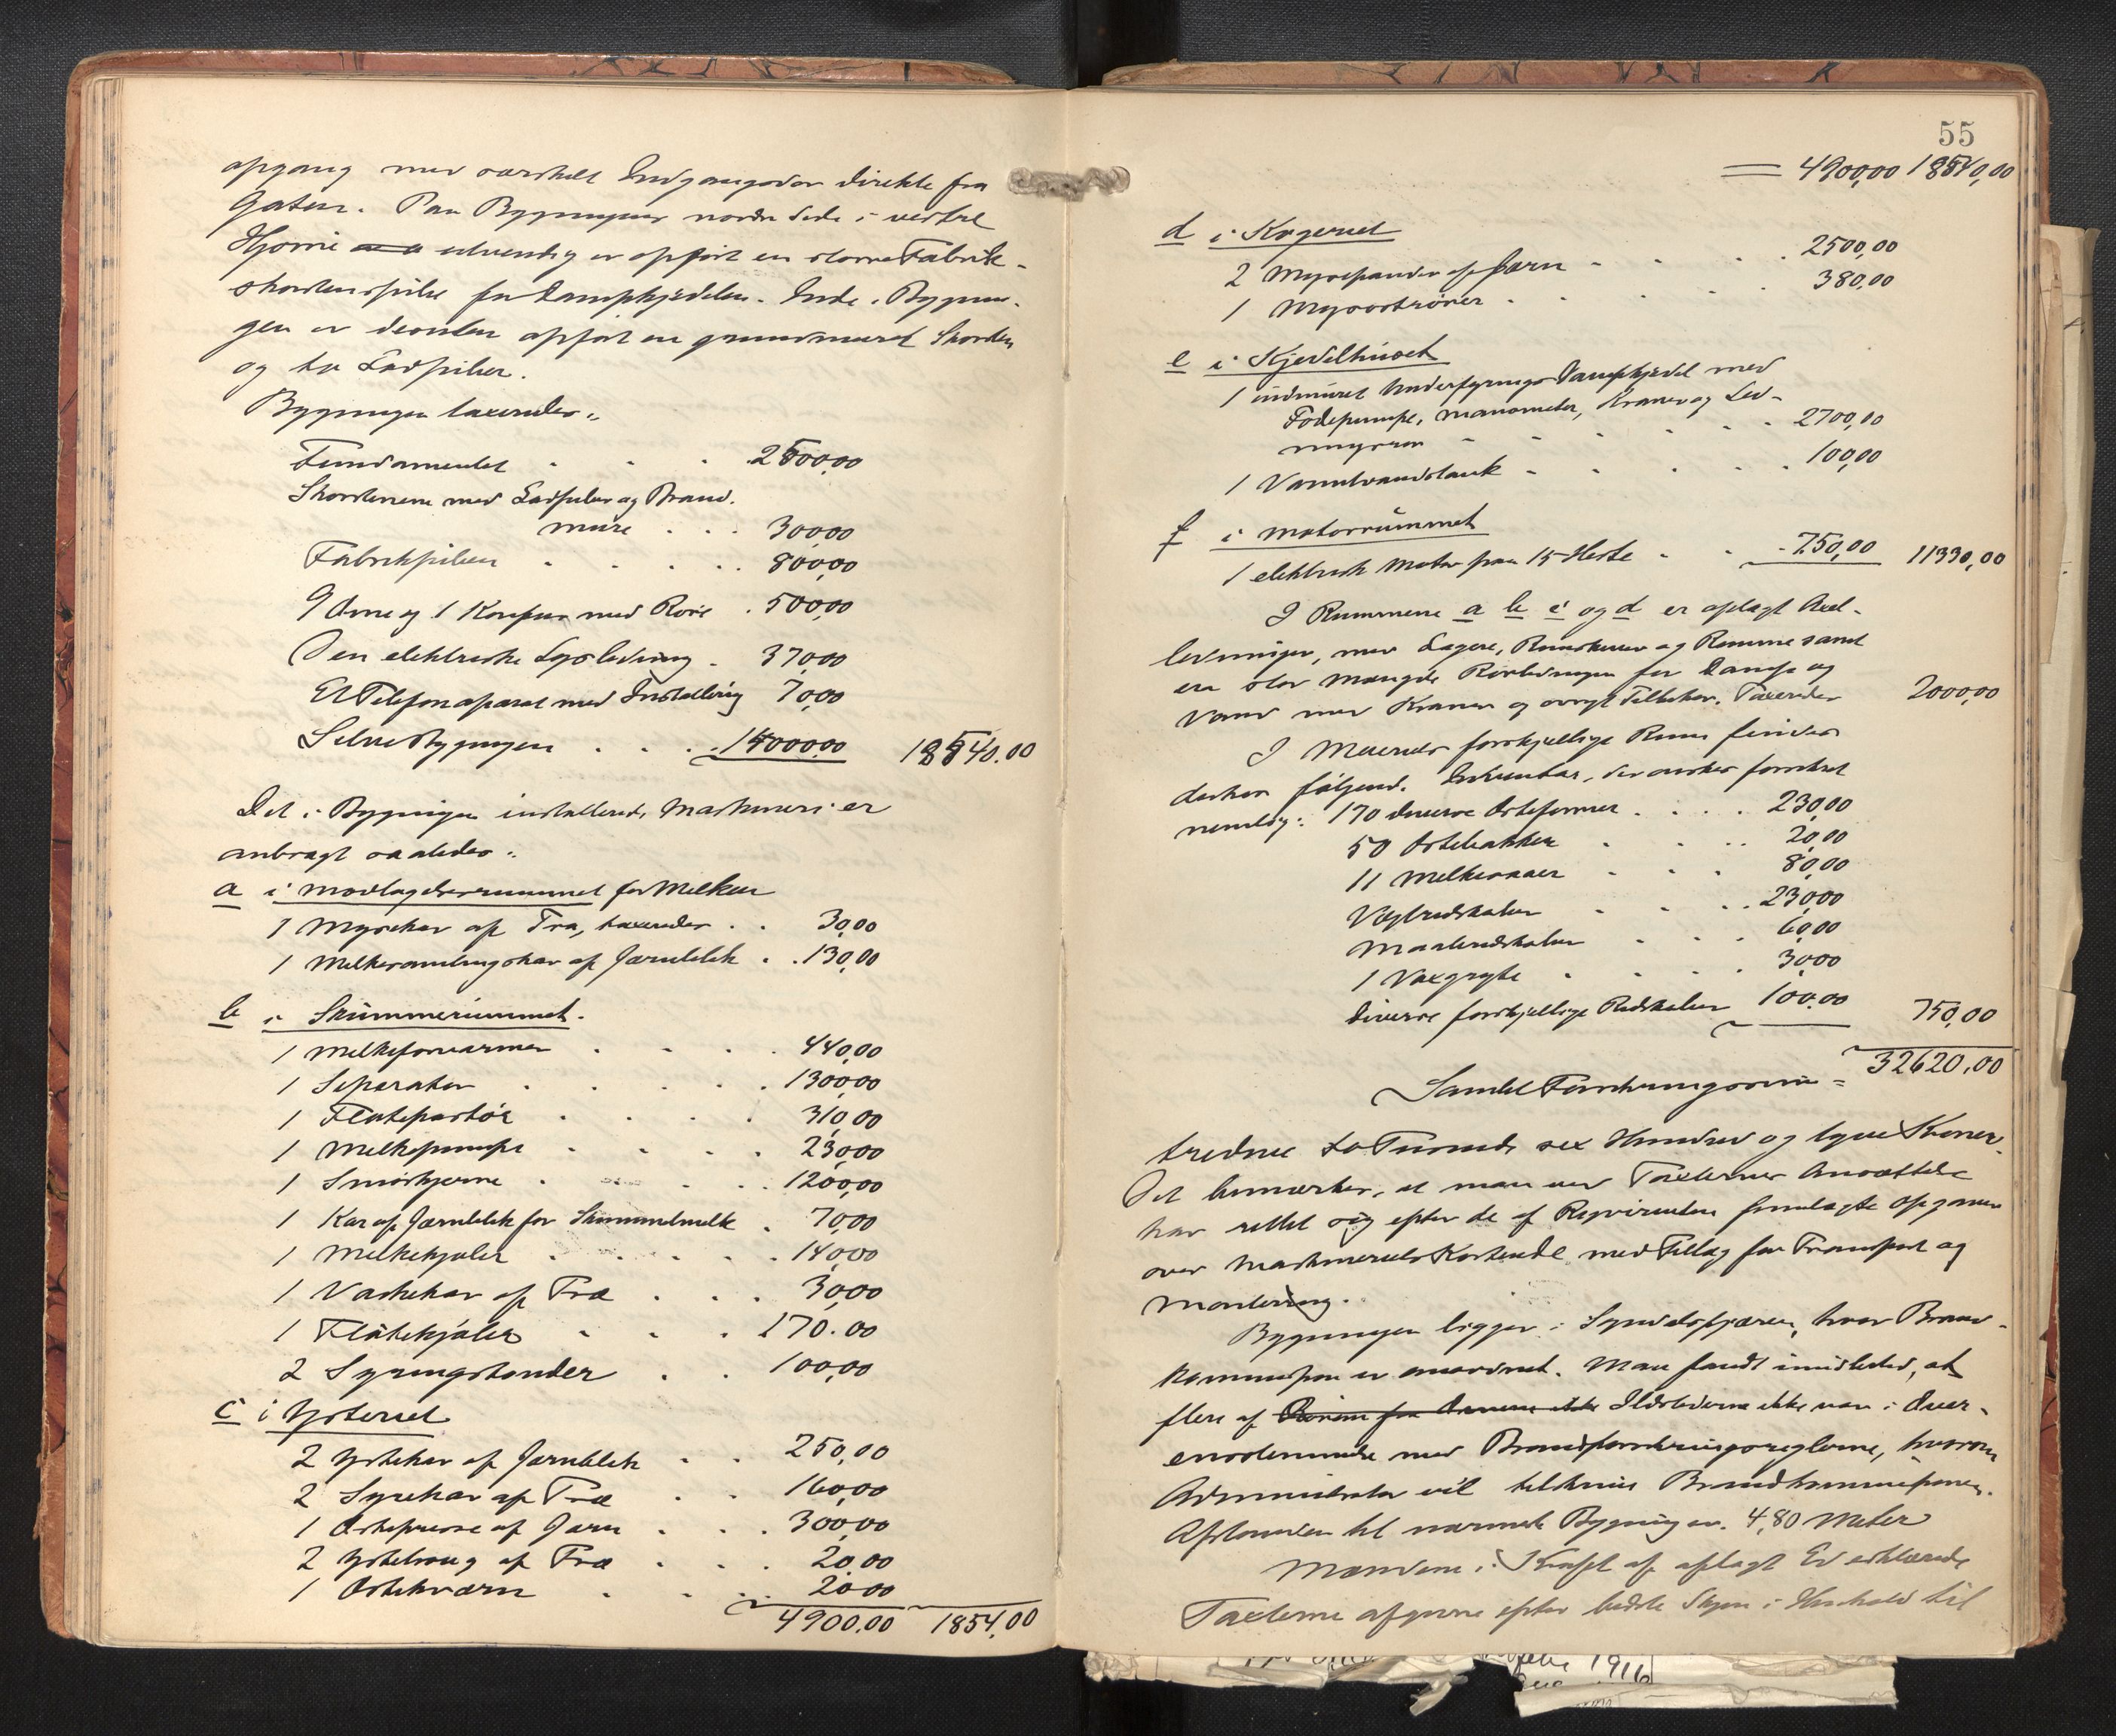 opgang med særskilt Indgangsdør direkte fra
Gaten. Paa Bygningens nordre Side i vestre
Hjørne udvendig er opført en større Fabrik-
skorstenspibe for Dampkjedelen. Inde i Bygnin-
gen er desuden opført en grundmuret Skorsten
og to Ladpiber.
Bygningen taxeredes:
Fundamentet . . . 2500,00
Skorstenene med Ladpiber og Brand-
mure . . . 300,00
Fabrikpiben . . . . . 800,00
9 Ovne og 1 Komfur med Rør . 500,00
Den elektriske Lysledning . 370,00
Et Telefonaparat med Installering 70,00
Selve Bygningen . . . 14000,00 18540.00
Det i Bygningen installerede Maskineri er
anbragt saaledes:
a i Modtagelsesrummet for Melken
1 Mysekar af Træ, taxeredes . . 30,00
1 Melkesamlingskar af Jærnblik . . 130,00
b i Skummerummet.
1 Melkeforvarmer . . . . 440,00
1 Separator . . . . . 1300,00
1 Fløtepastør . . . . 310,00
1 Melkepumpe . . . . 230,00
1 Smørkjerne . . . . 1200,00
1 Kar af Jærnblik for Skummetmelk . 70,00
1 Melkekjøler . . . . . 140,00
1 Vaskekar af Træ . . . 30,00
1 Fløtekjøler . . . 170.00
2 Syringstønder . . 100,00
c i Ysteriet
2 Ystekar af Jærnblik . . 250,00
2 Syrekar af Træ . . 160,00
1 Ostepresse af Jærn . . . 300,00
2 Ystetraug af Træ . . . 20,00
1 Ostekværn . . . 20,00
4900.00 1854,00
55
4900,00 18540,00
d i Kogeriet
2 Mysepander af Jærn . . . 2500,00
1 Mysostrører . . . . . 380,00
e i Kjedelhuset
1 indmuret Underfyrings Dampkjedel med
Fødepumpe, Manometer, Kraner og Led-
ningsrør . . . . . . 2700,00
1 Varmtvandstank . . . . . 100,00
f i Motorrummet
1 elektrisk Motor paa 15 Heste . . . 750,00 11330,00
I Rummene a b c og d er oplagt Axel-
ledninger, med Lagere, Remskiver og Remme samt
en stor Mængde Rørledninger for Damp og
Vand med Kraner og øvrigt Tilbehør. Taxeredes 2000,00
I Meieriets forskjellige Rum findes
desuden følgende Inventar, der ønskes forsikret
nemlig: 170 diverse Osteformer . . . . 230,00
50 Ostebakker . . . . 20,00
11 Melkespann . . . 80,00
Vægtredskaber . . . 230,00
Maaleredskaber . . . 60,00
1 Voxgryte . . . . 30,00
Diverse forskjellige Redskaber 100.00 750,00
Samlet Forsikringssum = 32620.00
tredive to Tusende sex Hundred og tyve Kroner.
Det bemærkes, at man ved Taxternes Ansættelse
har rettet sig efter de af Rekvirenten fremlagte Opgaver
over Maskineriets Kostende med Tillæg for Transport og
Montering.
Bygningen ligger i Syvdefjæren, hvor Brand-
kommission er anordnet. Man fandt imidlertid, at
flere af Rørene fra Ovnene ikke Ildstederne ikke var i Over-
ensstemmelse med Brandforsikringsreglerne, hvorom
Administrator vil tilskrive Brandkommissionen.
Afstanden til nærmeste Bygning er 4,80 Meter
Mændene i Kraft af aflagt Ed erklærede
Taxterne afgivne efter bedste Skjøn i Henhold til
1916